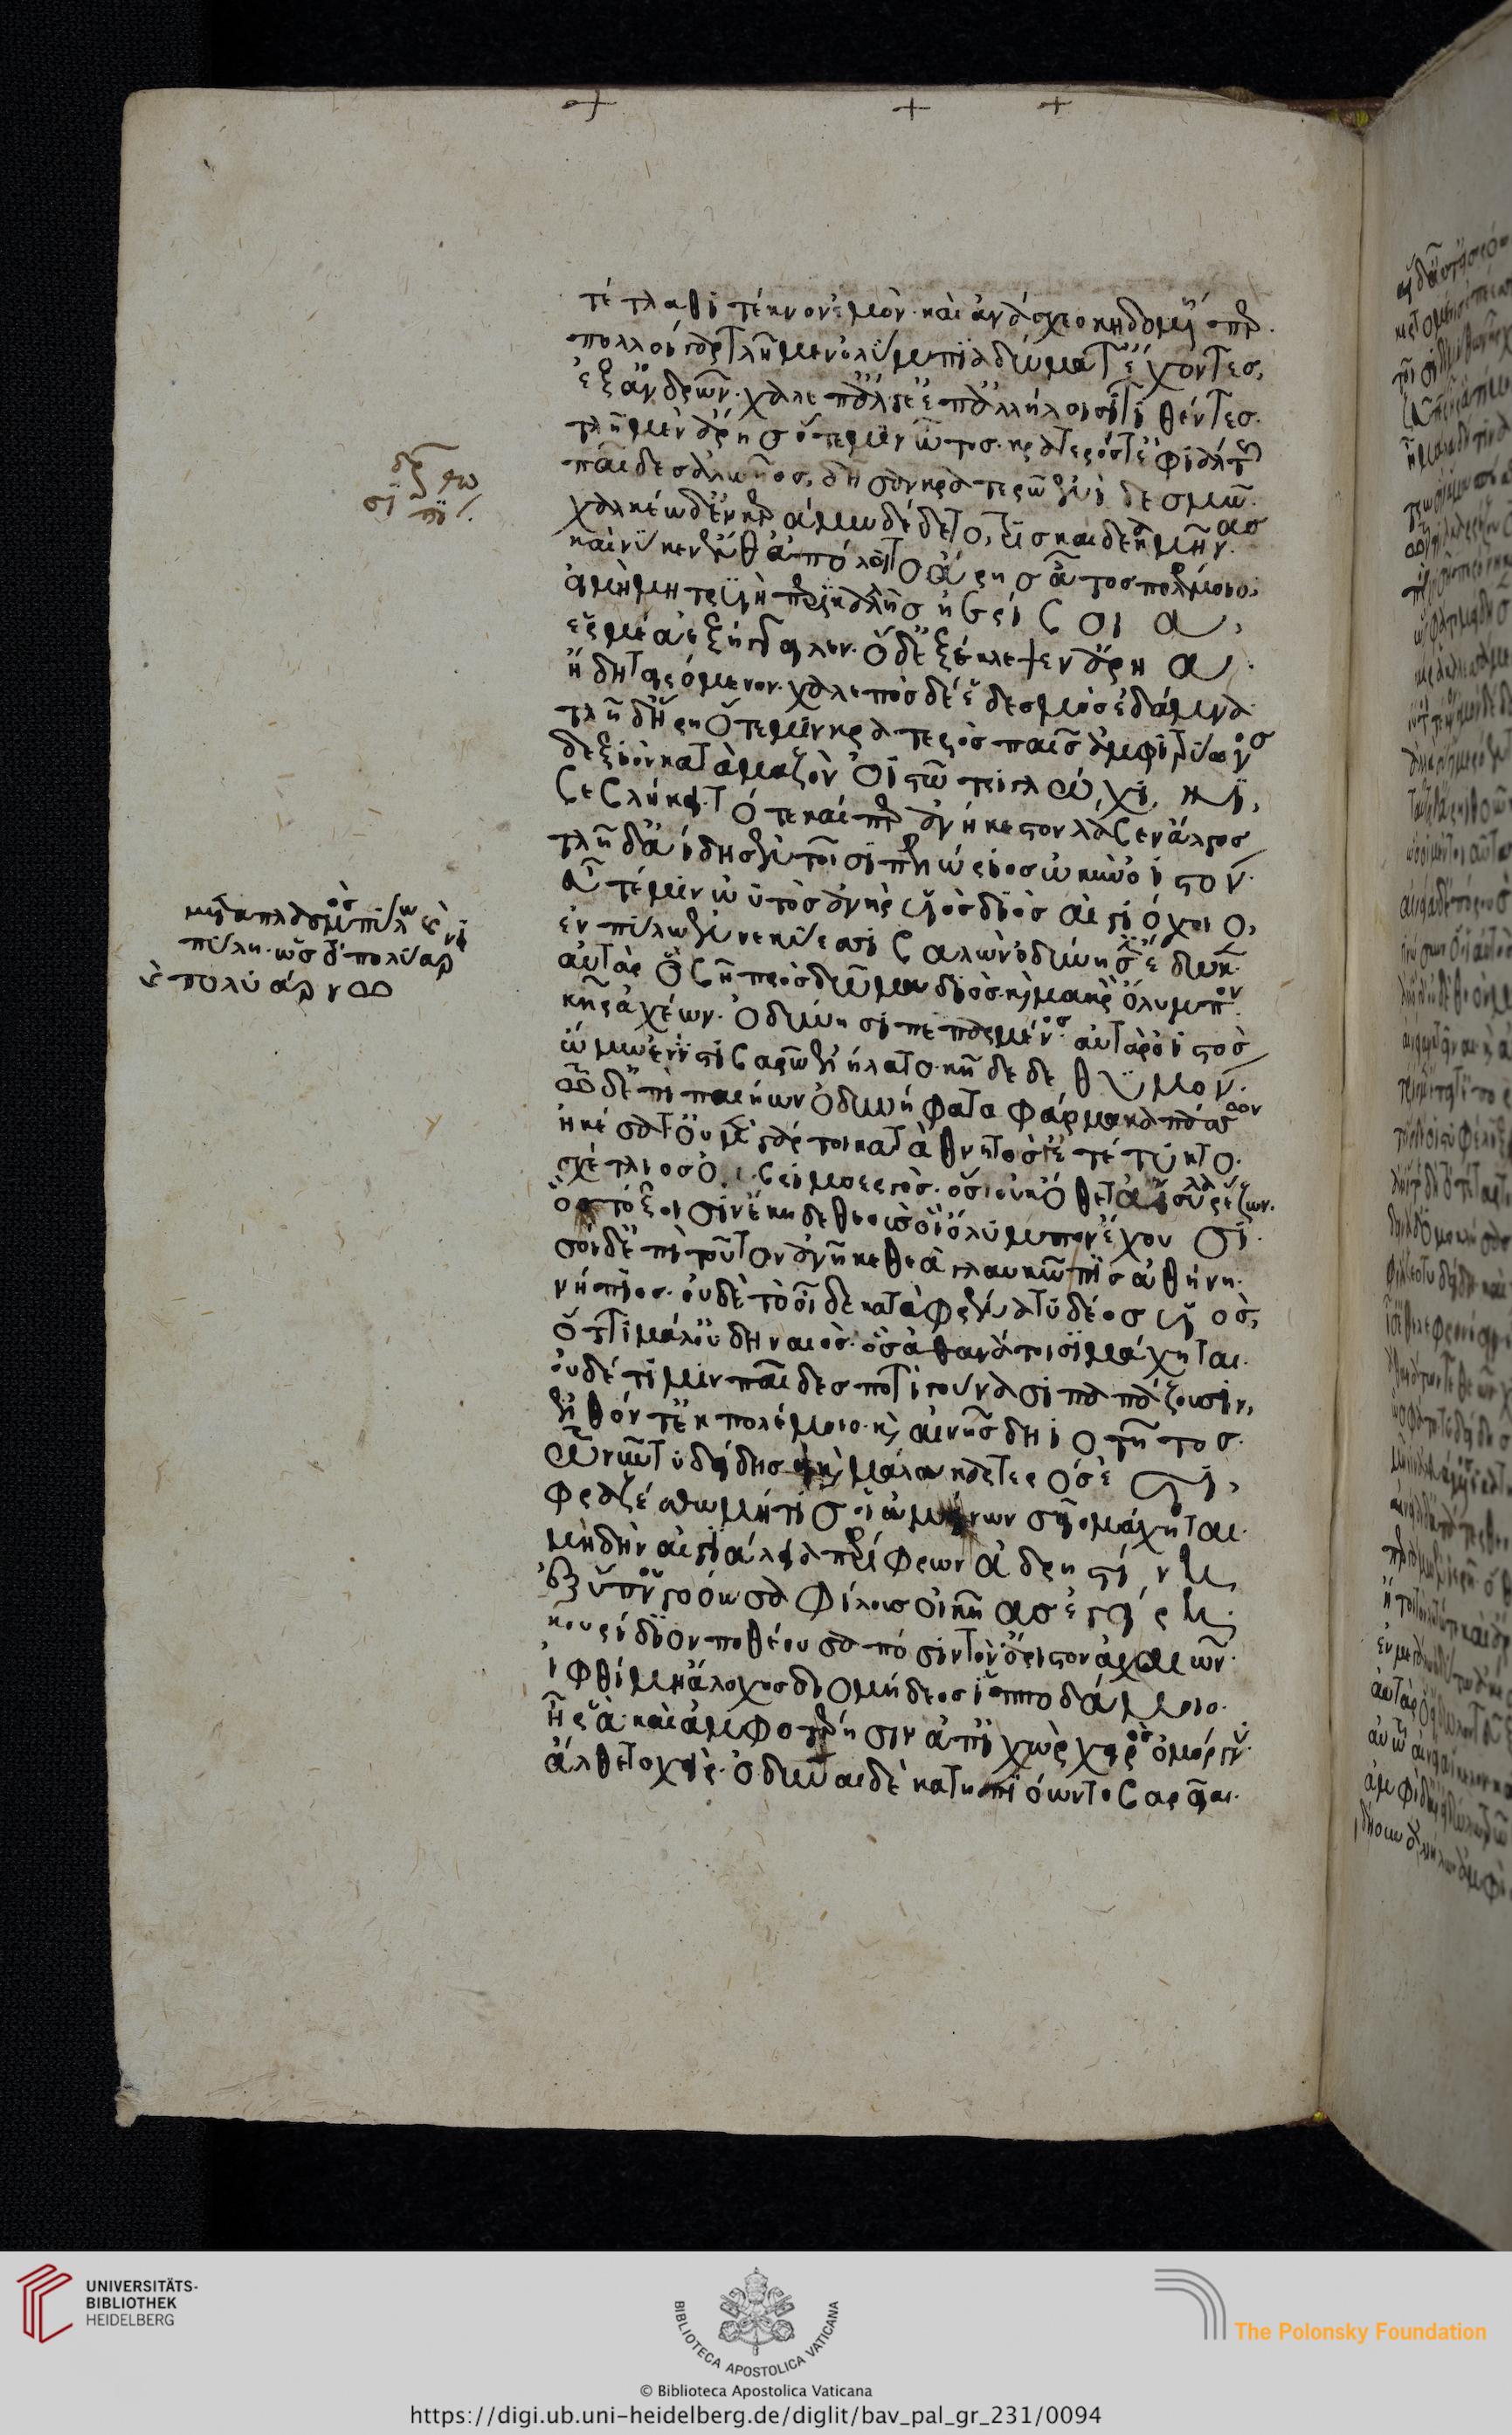 τέτλαθι τέκνον ἐμὸν· καὶ ἀνάσχεο κηδομένη περ.
πολλοὶ γὰρ τλῆμεν ὀλύμπια δώματ' ἔχοντες,
ἐξ ἀνδρῶν· χαλέπ' ἄλγε' ἐπ' ἀλλήλοισι τιθέντες.
τλῆ μὲν ἄρης ὅτε μιν ὦτος· κρατερός τ' ἐφιάλτης
παῖδες ἀλωῆος, δῆσαν κρατερῶ ἐνὶ δεσμῶ.
χαλκέω δ' ἐν κεράμω δέδετο, τρεισκαίδεκα μῆνας
καί νύ κεν ἔνθ' ἀπόλοιτο ἄρης ἆτος πολέμοιο.
εἰ μὴ μητρυιὴ περικαλλὴς ἠερίβοια,
ἑρμέα ἐξήγγειλεν. ὁ δ' ἐξέκλεψεν ἄρηα.
ἤδη τειρόμενον. χαλεπὸς δέ ἑ δεσμὸς ἐδάμνα
τλῆ δ' ἥρη ὅτε μιν κρατερὸς παῖς ἀμφιτρύωνος
δεξιὸν κατὰ μαζὸν ὀιστῶ τριγλώχινι,
βεβλήκει. τότε καί περ ἀνήκεστον λάβεν ἄλγος
τλῆ δ' ἀίδης ἐν τοῖσι πελώριος ὠκὺν ὀιστόν.
εὖτέ μιν ωὑτὸς ἀνὴρ υἱὸς διὸς αἰγιόχοιο,
ἐν πύλω ἐν νεκύεσσι βαλὼν ὀδύνησιν ἔδωκεν.
αὐτὰρ ὁ βῆ πρὸς δῶμα διὸς καὶ μακρὸν ὄλυμπον.
κῆρ ἀχέων. ὀδύνησι πεπαρμένος αὐτὰρ ὀιστὸς
ὤμω ἔνι στιβαρῶ ἠλήλατο. κῆδε δὲ θυμόν.
τῶ δ' ἐπὶ παιήων ὀδυνήφατα φάρμακα πάσσων
ἠκέσατ' οὐ μὲν γάρ τοι καταθνητός γε τέτυκτο.
σχέτλιος ὀβριμοεργὸς· ὃς οὐκ ὄθετ' αἴσυλα ῥέζων.
ὃς τόξοισιν ἔκηδε θεοὺς οἳ ὄλυμπον ἔχουσι.
σοὶ δ' ἐπὶ τοῦτον ἀνῆκε θεὰ γλαυκῶπις ἀθήνη.
νήπιος. οὐδὲ τὸ οἶδε κατὰ φρένα τυδέος υἱός,
ὅττι μάλ' οὐ δηναιὸς. ὃς ἀθανάτοισι μάχηται.
οὐδέ τι μιν παῖδες ποτὶ γούνασι παππάζουσιν,
ἐλθόντ' ἐκ πολέμοιο. καὶ αἰνῆς δηιοτῆτος.
τῶ νῦν τυδείδης εἰ καὶ μάλα καρτερός ἐστι,
φραζέσθω μή τις οἱ ἀμείνων σεῖο μάχηται.
μὴ δὴν αἰγιάλεια περίφρων ἀδρηστίνη,
ἐξ ὕπνου γοόωσα φίλους οἰκῆας ἐγείρη.
κουρίδιον ποθέουσα πόσιν τὸν ἄριστον ἀχαιῶν.
ἰφθίμη ἄλοχος διομήδεος ἱπποδάμοιο.
ἦ ῥα. καὶ ἀμφοτέρησιν ἀπ' ἰχῶρ χειρὸς ὀμόργνυ.
ἄλθετο χείρ. ὀδύναι δὲ κατηπιόωντο βαρεῖαι.
ὡς ὁ πολύαρ
ὁ πολύαρνος
UNIVERSITÄTS-
BIBLIOTHEK
HEIDELBERG
BIBLIOTECA APOSTOLICA VATICANA
The Polonsky Foundation
© Biblioteca Apostolica Vaticana
https://digi.ub.uni-heidelberg.de/diglit/bav_pal_gr_231/0094